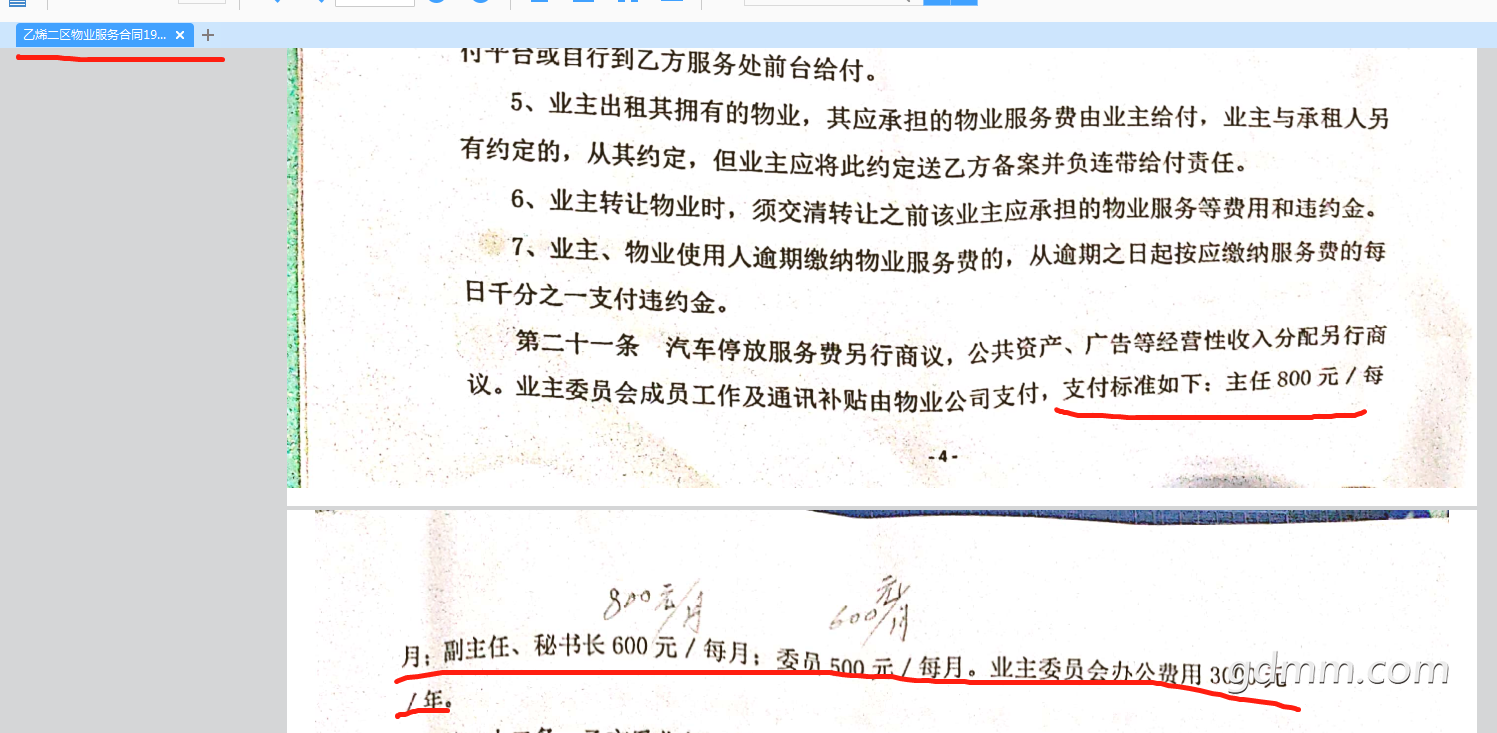 乙烯二区物业服务合同19...
付平台或自行到乙方服务处前台给付。
5、业主出租其拥有的物业，其应承担的物业服务费由业主给付，业主与承租人另
有约定的，从其约定，但业主应将此约定送乙方备案并负连带给付责任。
6、业主转让物业时，须交清转让之前该业主应承担的物业服务等费用和违约金。
7、业主、物业使用人逾期缴纳物业服务费的，从逾期之日起按应缴纳服务费的每
日千分之一支付违约金。
第二十一条 汽车停放服务费另行商议，公共资产、广告等经营性收入分配另行商
议。业主委员会成员工作及通讯补贴由物业公司支付，支付标准如下：主任800元/每
-4-
800元/月 600元/月
月；副主任、秘书长600元/每月；委员500元/每月。业主委员会办公费用3000元
/年。
gdmm.com